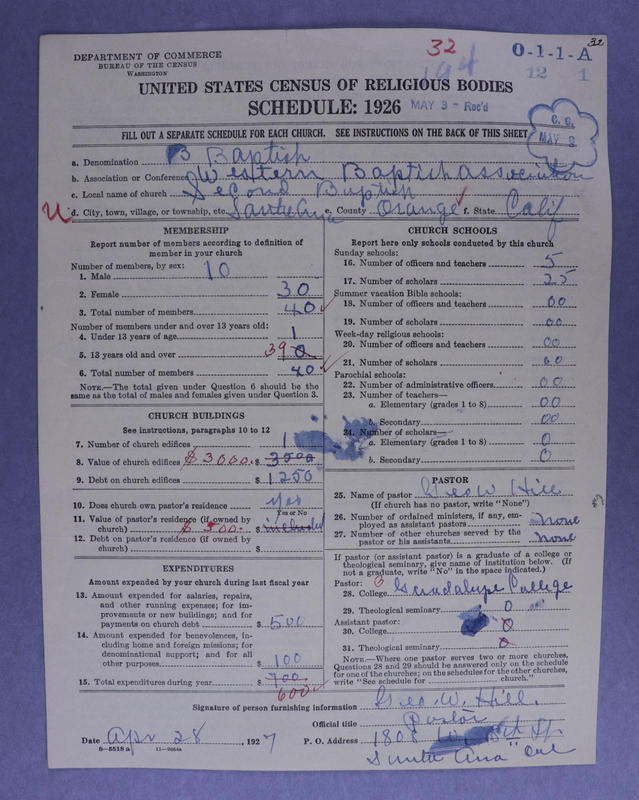 32
32
O-1-1-A
194
12 1
DEPARTMENT OF COMMERCE
BUREAU OF THE CENSUS
WASHINGTON
UNITED STATES CENSUS OF RELIGIOUS BODIES
SCHEDULE: 1926
MAY 3 - Rec'd
C. C.
MAY 3
FILL OUT A SEPARATE SCHEDULE FOR EACH CHURCH. SEE INSTRUCTIONS ON THE BACK OF THIS SHEET
a. Denomination B Baptish
b. Association or Conference Western Baptish association
c. Local name of church Second Baptish
U d. City, town, village, or township, etc. Santa Ana e. County Orange f. State Calif
MEMBERSHIP
Report number of members according to definition of
member in your church
Number of members, by sex:
1. Male 10
2. Female 30
3. Total number of members 40
Number of members under and over 13 years old:
4. Under 13 years of age 1
5. 13 years old and over 39 0
6. Total number of members 40
NOTE.—The total given under Question 6 should be the
same as the total of males and females given under Question 3.
CHURCH BUILDINGS
See instructions, paragraphs 10 to 12
7. Number of church edifices 1
8. Value of church edifices $3000. $ 3500
9. Debt on church edifices $ 1250
10. Does church own pastor's residence yes
Yes or No
11. Value of pastor's residence (if owned by
church) $500. $ included
12. Debt on pastor's residence (if owned by
church) $
EXPENDITURES
Amount expended by your church during last fiscal year
13. Amount expended for salaries, repairs,
and other running expenses; for im-
provements or new buildings; and for
payments on church debt $ 500
14. Amount expended for benevolences, in-
cluding home and foreign missions; for
denominational support; and for all
other purposes $ 100
15. Total expenditures during year $ 700
600
CHURCH SCHOOLS
Report here only schools conducted by this church
Sunday schools:
16. Number of officers and teachers 5
17. Number of scholars 25
Summer vacation Bible schools:
18. Number of officers and teachers 00
19. Number of scholars 00
Week-day religious schools:
20. Number of officers and teachers 00
21. Number of scholars 00
Parochial schools:
22. Number of administrative officers 00
23. Number of teachers—
a. Elementary (grades 1 to 8) 00
b. Secondary 00
24. Number of scholars—
a. Elementary (grades 1 to 8) 0
b. Secondary 0
PASTOR
25. Name of pastor Geo W Hill
(If church has no pastor, write "None")
26. Number of ordained ministers, if any, em-
ployed as assistant pastors none
27. Number of other churches served by the
pastor or his assistants none
If pastor (or assistant pastor) is a graduate of a college or
theological seminary, give name of institution below. (If
not a graduate, write "No" in the space indicated.)
Pastor:
28. College Guadalupe College
29. Theological seminary 0
Assistant pastor:
30. College 0
31. Theological seminary 0
NOTE.—Where one pastor serves two or more churches,
Questions 28 and 29 should be answered only on the schedule
for one of the churches; on the schedules for the other churches,
write "See schedule for church."
Signature of person furnishing information Geo. W. Hill.
Official title Pastor
Date Apr 28, 1927 P. O. Address 1808 W. St.
8—5518 a 11—9554a
Santa Ana Cal